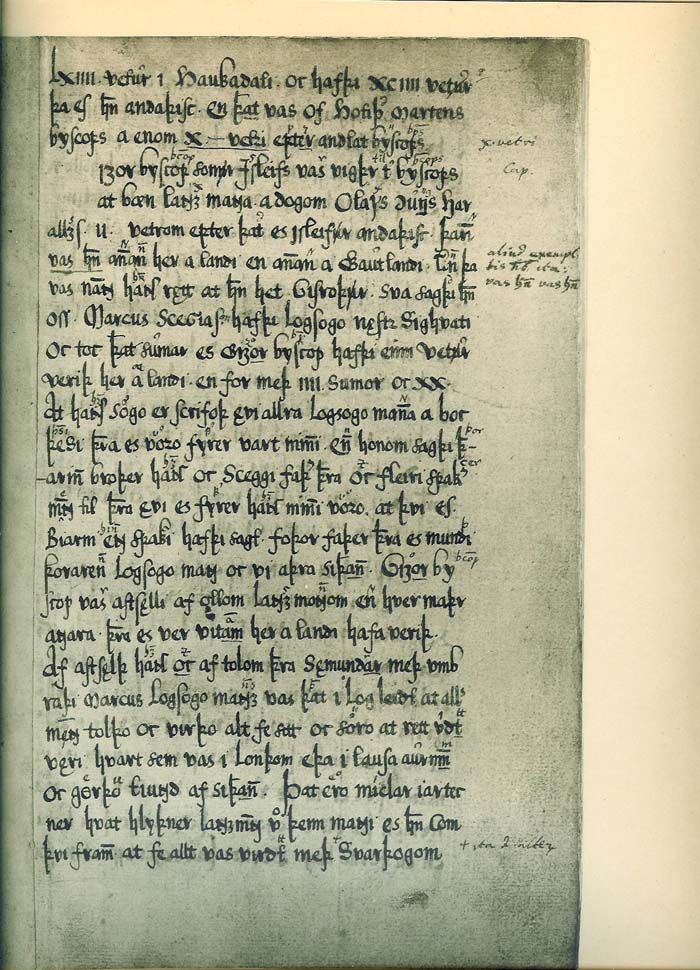 LXIIII. vetur i Haukadali. oc hafþi XCIIII vetur
þa es hn̄ andaþisc. en þat vas of Hotiþ Martens
byscops a enom X — vetri epter andlat byscops
Izor byscop sonur Isleifs vas vigþr t byscops
at bœn landz manna a dogom Olafs
II. vetrom epter þat es Isleifur andaþisc. þann̄
vas hn̄ annan her a landi en annan a Gautlandi.
vas nafn hans rett at hn̄ het Gisroþur. sva sagþi hn̄
oss. Marcus Sceggias hafþi Logsogo nęstr Sighvati
Oc toc þat sumar es Gizor byscop hafþi einn vetur
veriþ her a landi. en for meþ IIII. Sumor oc XX.
At hans sogo er scrifoþ ęvi allra Logsogo manna a boc
þesi þra es voro fyrer vart minni. en honom sagþi þ-
-arin broþer hans oc Sceggi faþ þra oc fleiri spak
menn til þra ęvi es fyrer hans minni voro. at þvi es.
Biarni en spaki hafþi sagt. foþor faþer þra es mundi
þoraren Logsogo mann oc VI aþra siþan. Gizor by
scop vas astsęlli af ollom landz monnom en hver maþr
annara. þra es ver vitam her a landi hafa veriþ.
Af astsęlþ hans oc af tolom þra Sęmundar meþ umb
raþi Marcus Logsogo mannz vas þat i Log leidt at all
menn tolþo oc virþo alt fe sitt oc soro at rett virdt
vęri hvart sem vas i Lonþom eþa i Lausa aurum
oc gorþo tiund af siþan. Þat ero miclar iartec
ner hvat hlyþner landzmenn vo þeim manni es hn̄ com
þvi fram at fe allt vas virdt meþ Svarþogom
x. vetri
Cap.
vas hn̄ vas hn̄